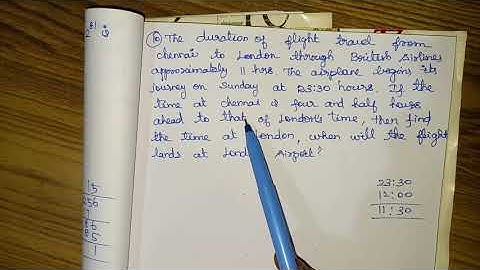 2^81 is
⑩ The duration of flight travel from
chennai to London through British Airlines
approximately 11 hrs. The airplane begins its
journey on Sunday at 23:30 hours. If the
time at chennai is four and half hours
ahead to that of London's time, then find
the time at London, when will the flight
lands at London Airport?
23:30
12:00
11:30
15
256
1
86
85
1